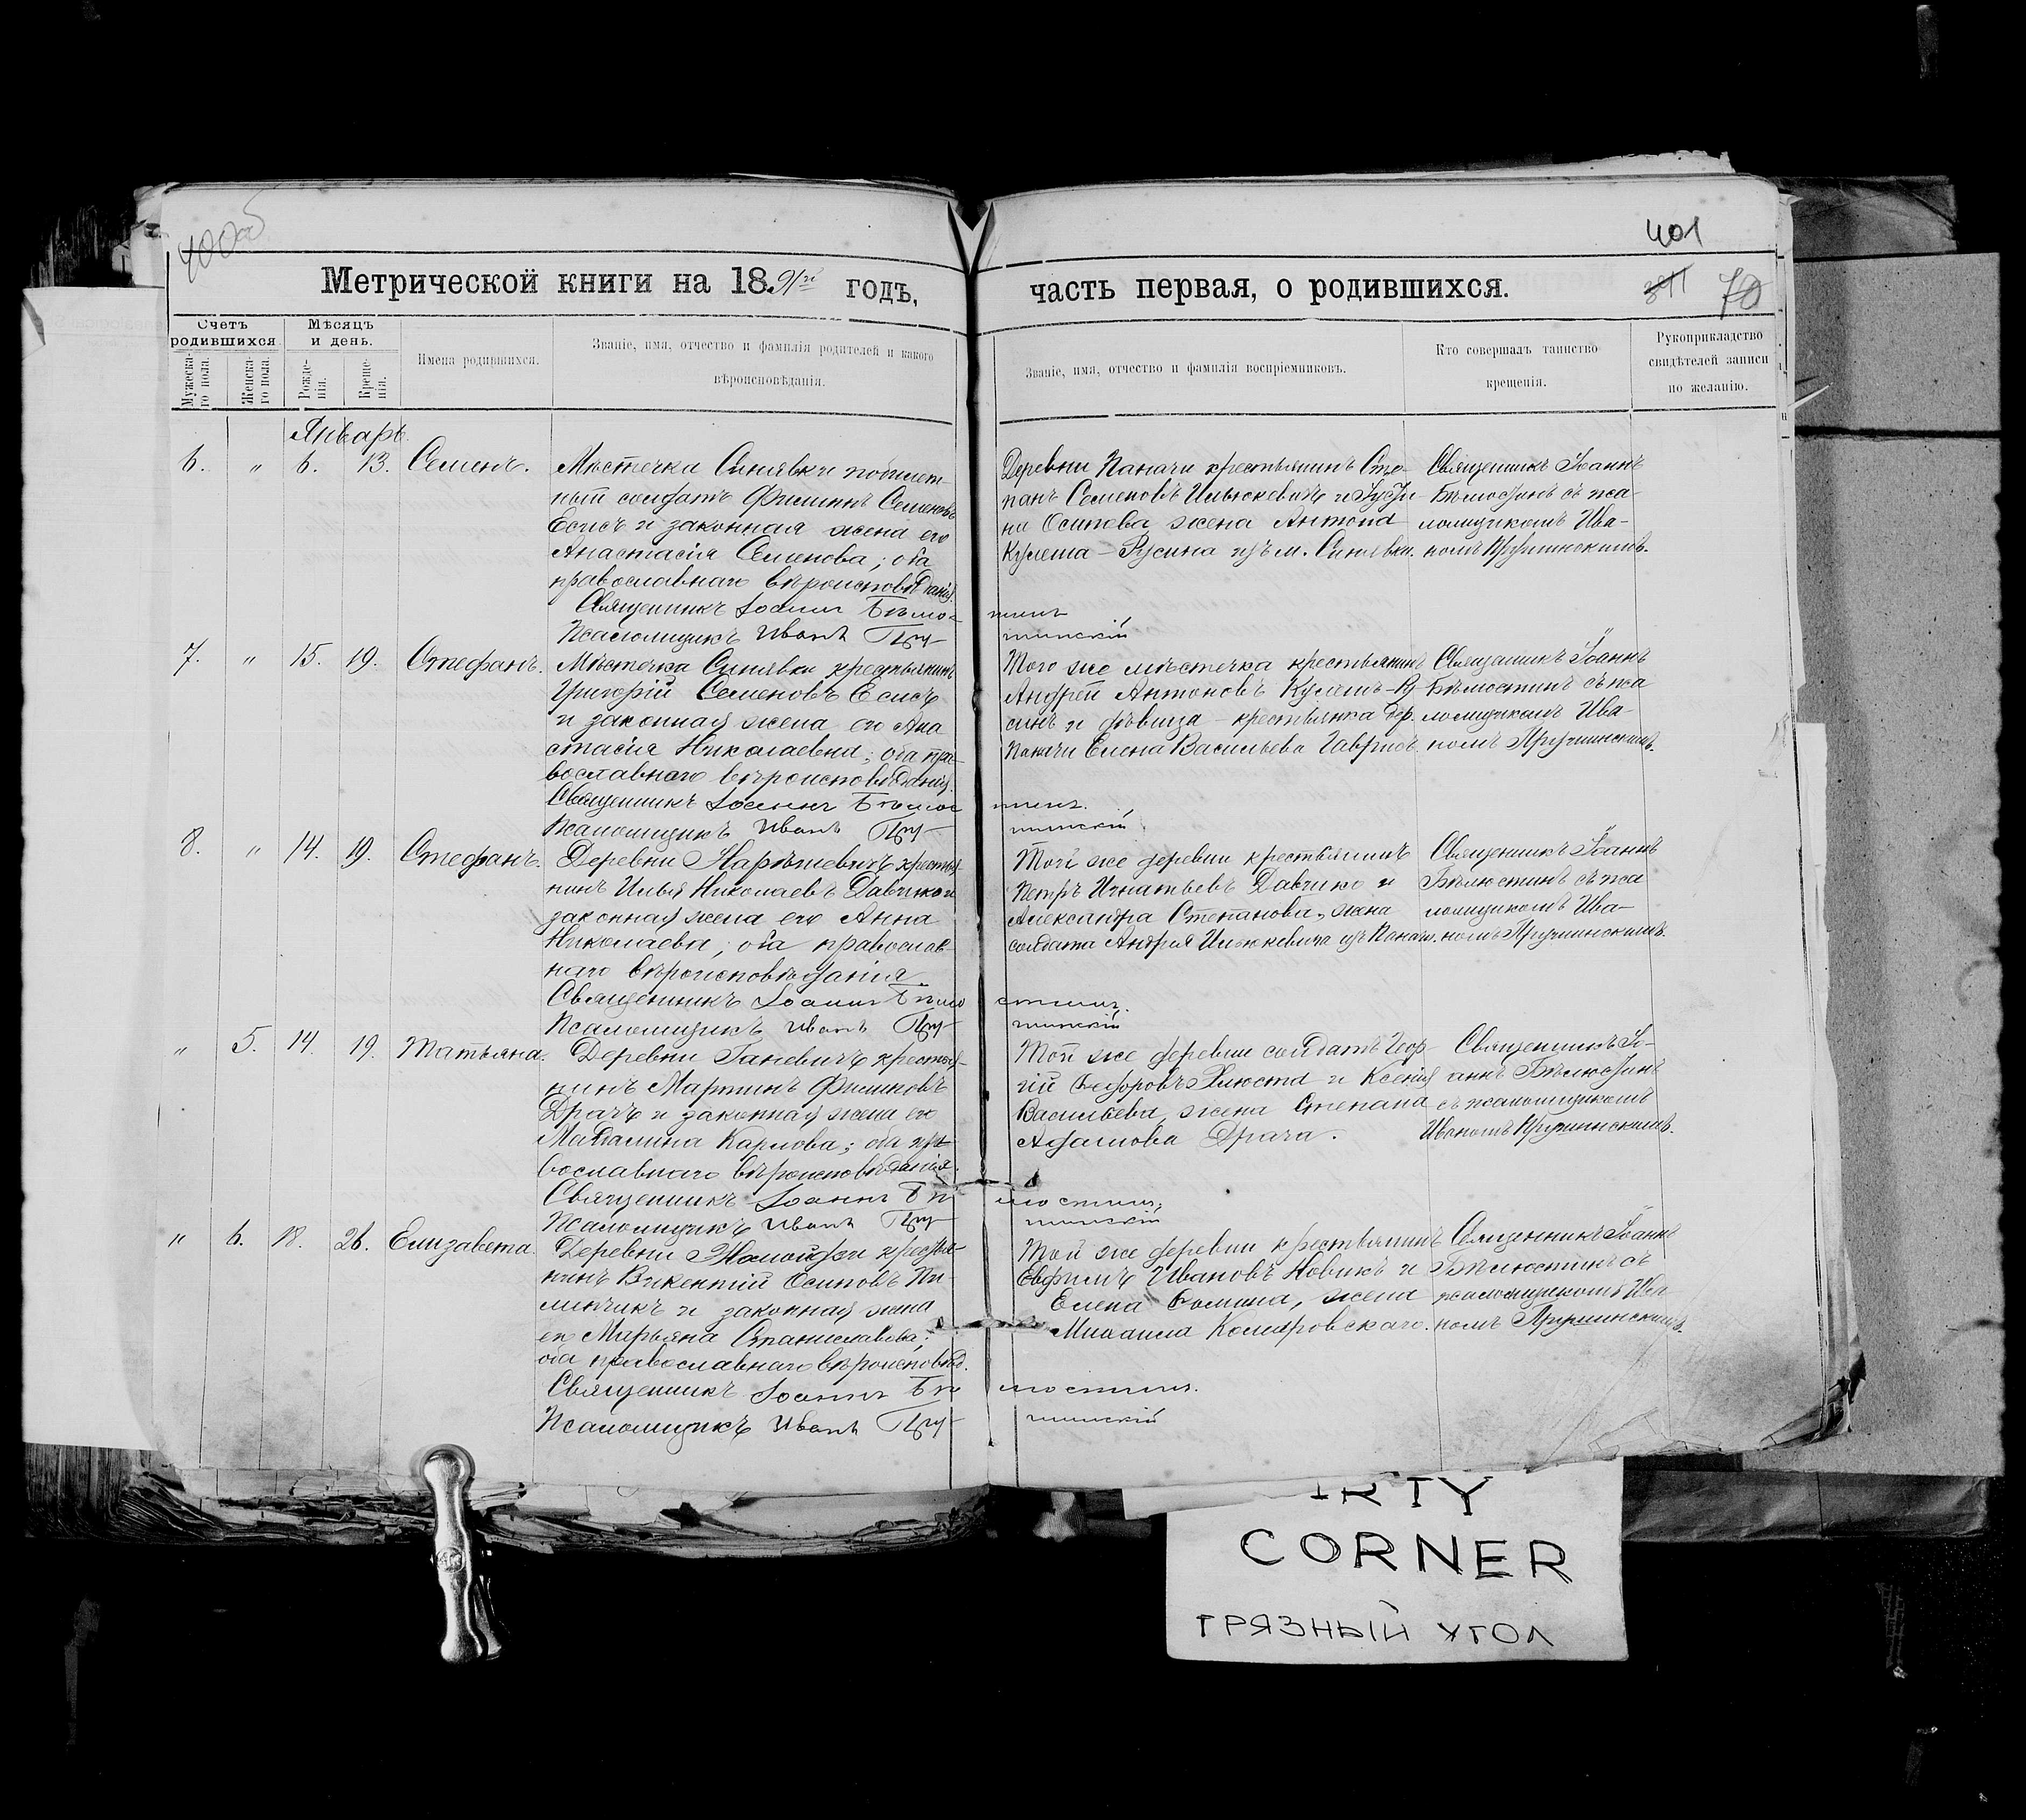 400об
401
Метрической книги на 1891й годъ,
часть первая, о родившихся.
311 70
Счетъ родившихся
Мѣсяцъ и день.
Мужеска-го пола.
Женска-го пола.
Рожде-нія.
Креще-нія.
Имена родившихся.
Званіе, имя, отчество и фамилія родителей и какого
вѣроисповѣданія.
Званіе, имя, отчество и фамилія воспріемниковъ.
Кто совершалъ таинство
крещенія.
Рукоприкладство
свидѣтелей записи
по желанію.
Январь.
6. " 6. 13. Семенъ.
Мѣстечка Синявки
ный солдатъ Филипъ Семеновъ
Есисъ и законная жена его
Анастасія Семенова; оба
православнаго вѣроисповѣданія.
Священникъ Іоаннъ Бѣлю-
стинъ
Псаломщикъ Иванъ Пру-
шинскій
Деревни Паначи крестьянинъ Сте-
панъ Семеновъ Ильюкевичъ и Іусти-
на Осипова жена Антона
Кулеша-Русина изъ м. Синявки.
Священникъ Іоаннъ
Бѣлюстинъ съ пса-
ломщикомъ Ива-
номъ Прушинскимъ.
7. " 15. 19. Стефанъ.
Мѣстечка Синявки крестьянинъ
Григорій Семеновъ Есисъ
и законная жена его Ана
стасія Николаевна; оба пра-
вославнаго вѣроисповѣданія.
Священникъ Іоаннъ Бѣлюс
тинъ.
Псаломщикъ Иванъ Пру-
шинскій.
Того же мѣстечка крестьянинъ
Андрей Антоновъ Кулешъ-Ру-
синъ и дѣвица - крестьянка дер.
Паначи Елена Васильева
Священникъ Іоаннъ
Бѣлюстинъ съ пса
ломщикомъ Ива-
номъ Прушинскимъ.
8. " 14. 19. Стефанъ.
Деревни крестья-
нинъ Илья Николаевъ Давчико и
законная жена его Анна
Николаева; оба православ-
наго вѣроисповѣданія.
Священникъ Іоаннъ Бѣлю
стинъ.
Псаломщикъ Иванъ Пру-
шинскій
Той же деревни крестьянинъ
Петръ Игнатьевъ Давчико и
Александра Степанова, жена
солдата Андрея Ильюкевича изъ Панач.
Священникъ Іоаннъ
Бѣлюстинъ съ пса
ломщикомъ Ива-
номъ Прушинскимъ.
" 5. 14. 19. Татьяна.
Деревни Ганевичъ крестья-
нинъ Мартинъ
Драчъ и законная жена его
Магдалина Карлова; оба пра-
вославнаго вѣроисповѣданія.
Священникъ Іоаннъ Бѣ
люстинъ,
Псаломщикъ Иванъ Пру-
шинскій
Той же деревни солдатъ Геор-
гій Ѳедоровъ и Ксенія
Васильева, жена Степана
Адамова Драча.
Священникъ Іо-
аннъ Бѣлюстинъ
съ псаломщикомъ
Иваномъ Прушинскимъ.
" 6. 18. 26. Елизавета.
Деревни крестья-
нинъ Викентій Осиповъ Пи-
линчикъ и законная жена
его Марьяна Станиславова;
оба православнаго вѣроисповѣд.
Священникъ Іоаннъ Бѣ
люстинъ.
Псаломщикъ Иванъ Пру-
шинскій
Той же деревни крестьянинъ
Евфимъ Ивановъ Новикъ и
Елена Ѳомина, жена
Михаила Комаровскаго.
Священникъ Іоаннъ
Бѣлюстинъ съ
псаломщикомъ Ива
номъ Прушинскимъ.
IRTY
CORNER
ГРЯЗНЫЙ УГОЛ